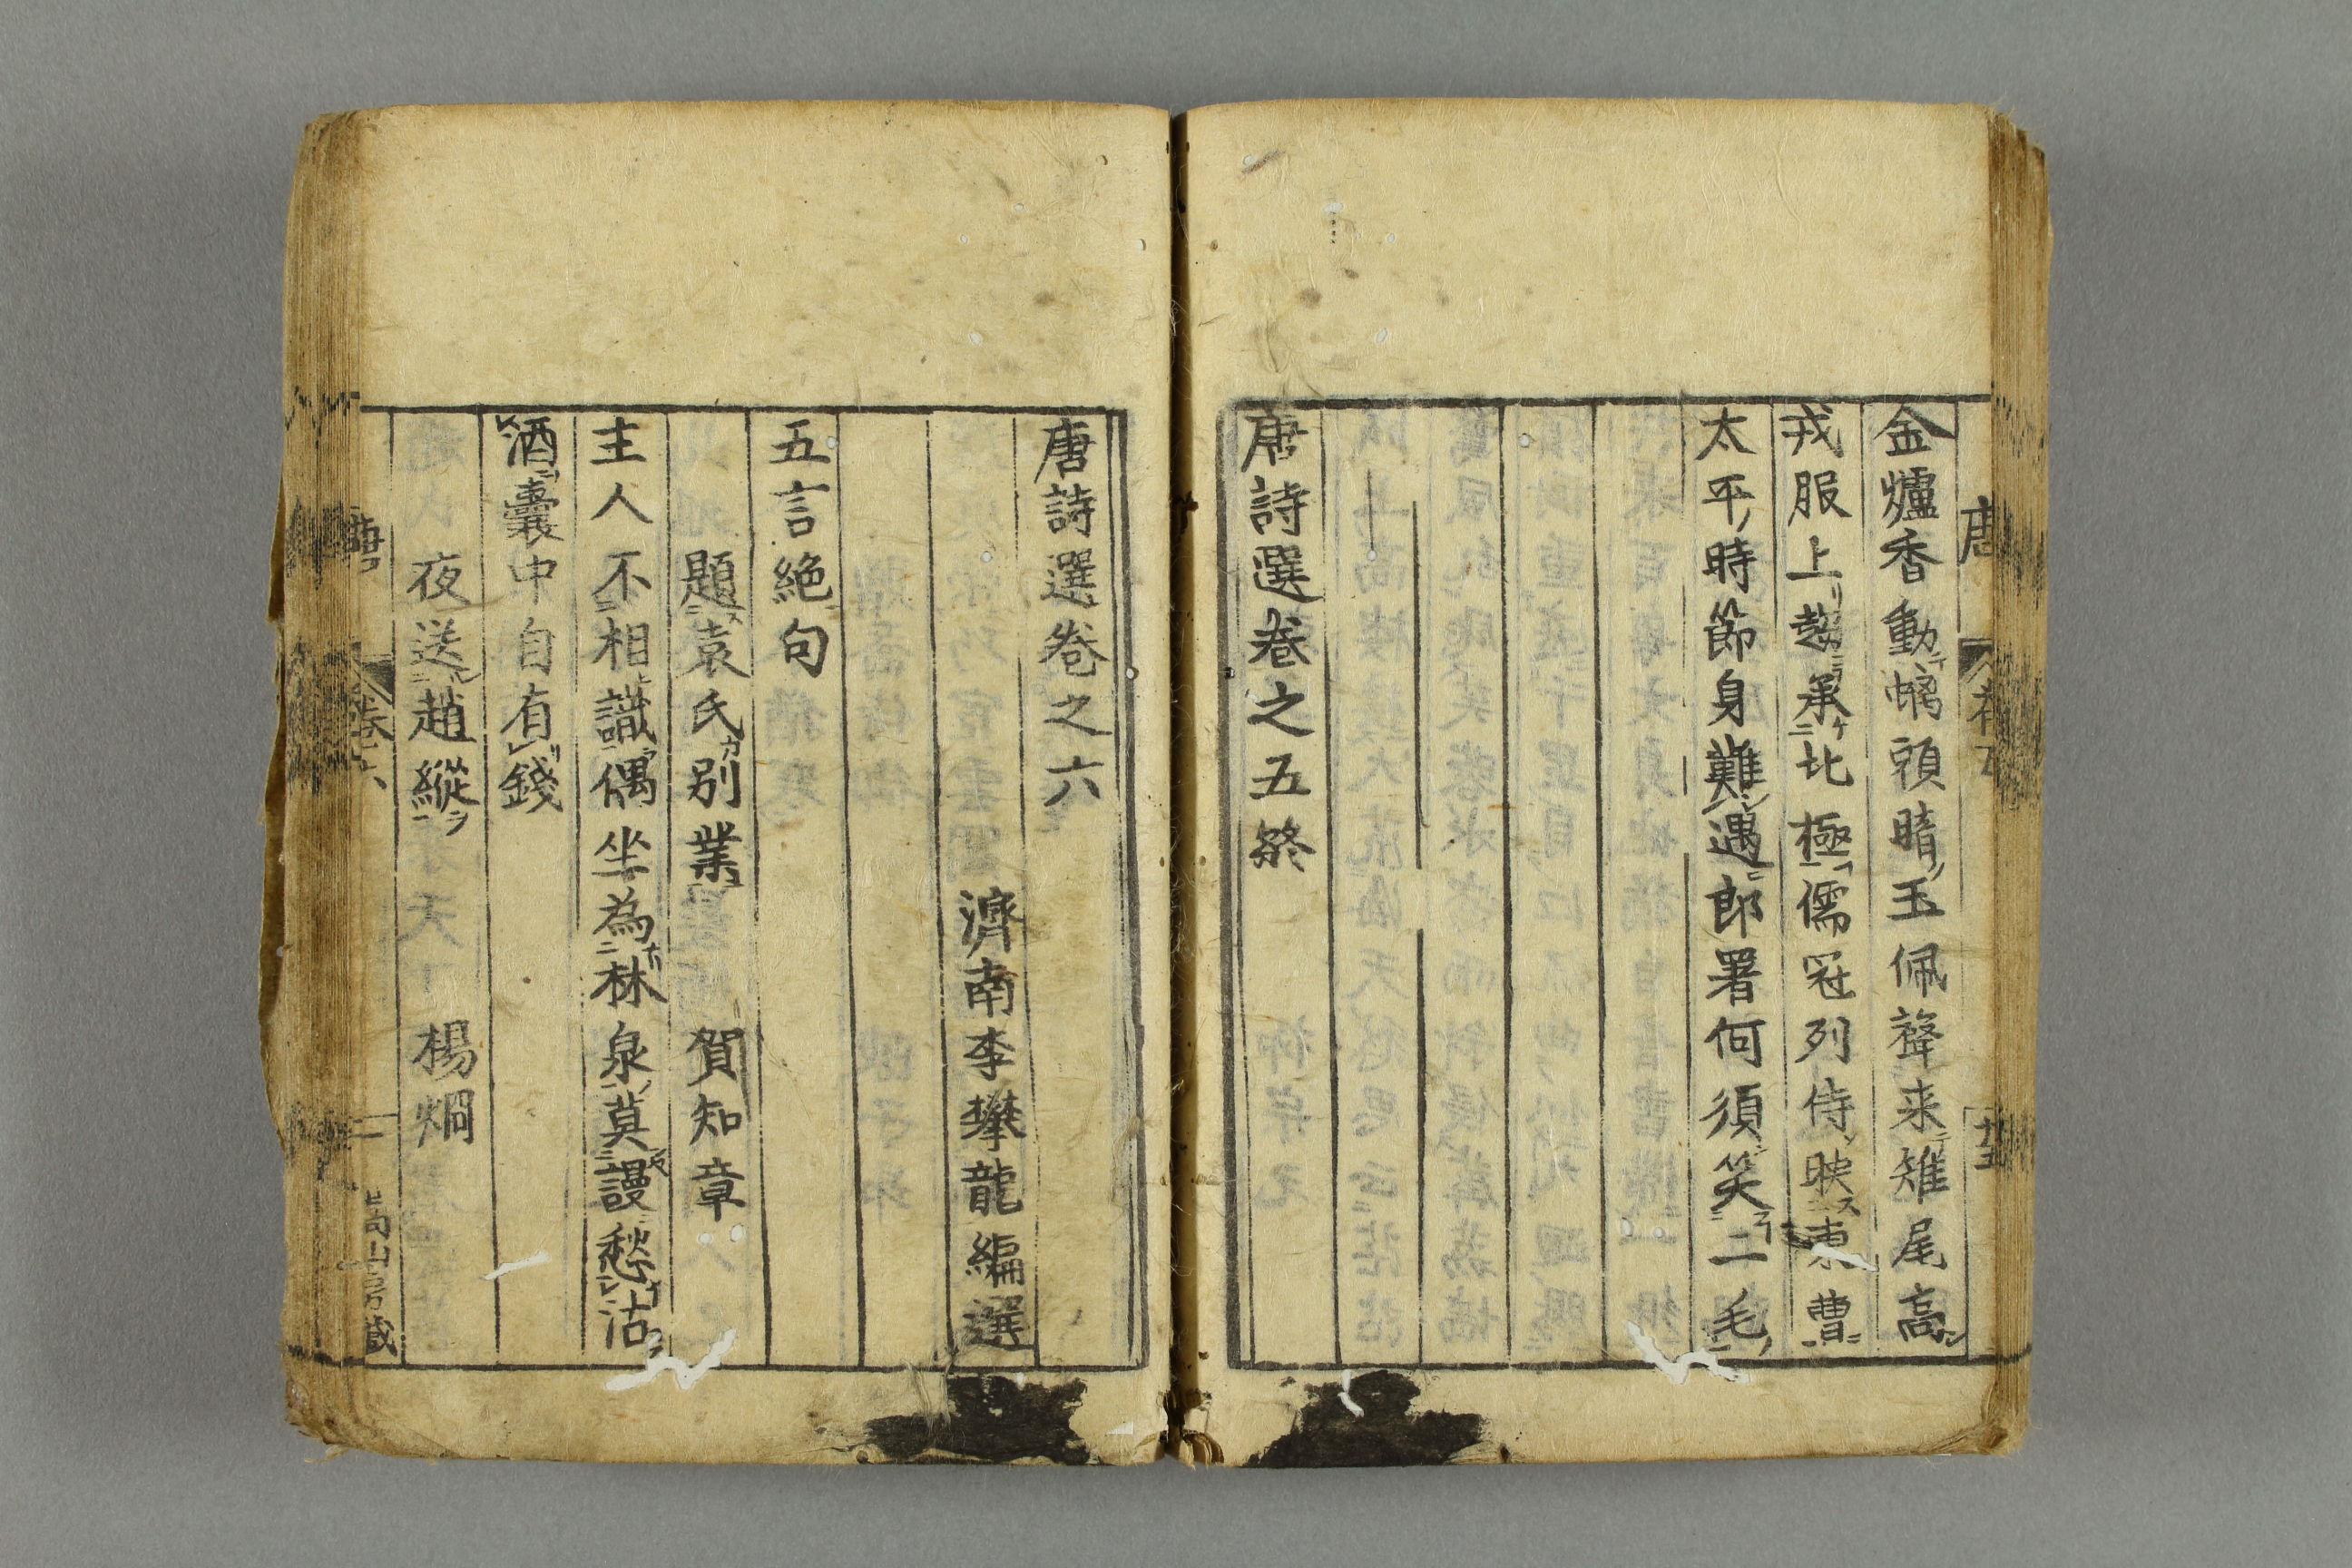 金爐香動螭頭暗玉佩聲来雉尾高
戎服上趨承北極儒冠列侍映東曹
太平時節身難遇郎署何須笑二毛
唐詩選卷之五終
唐詩選卷之六
濟南李攀龍編選
五言絶句
題袁氏別業 賀知章
主人不相識偶坐為林泉莫謾愁沽
酒囊中自有錢
夜送趙縱 楊烱